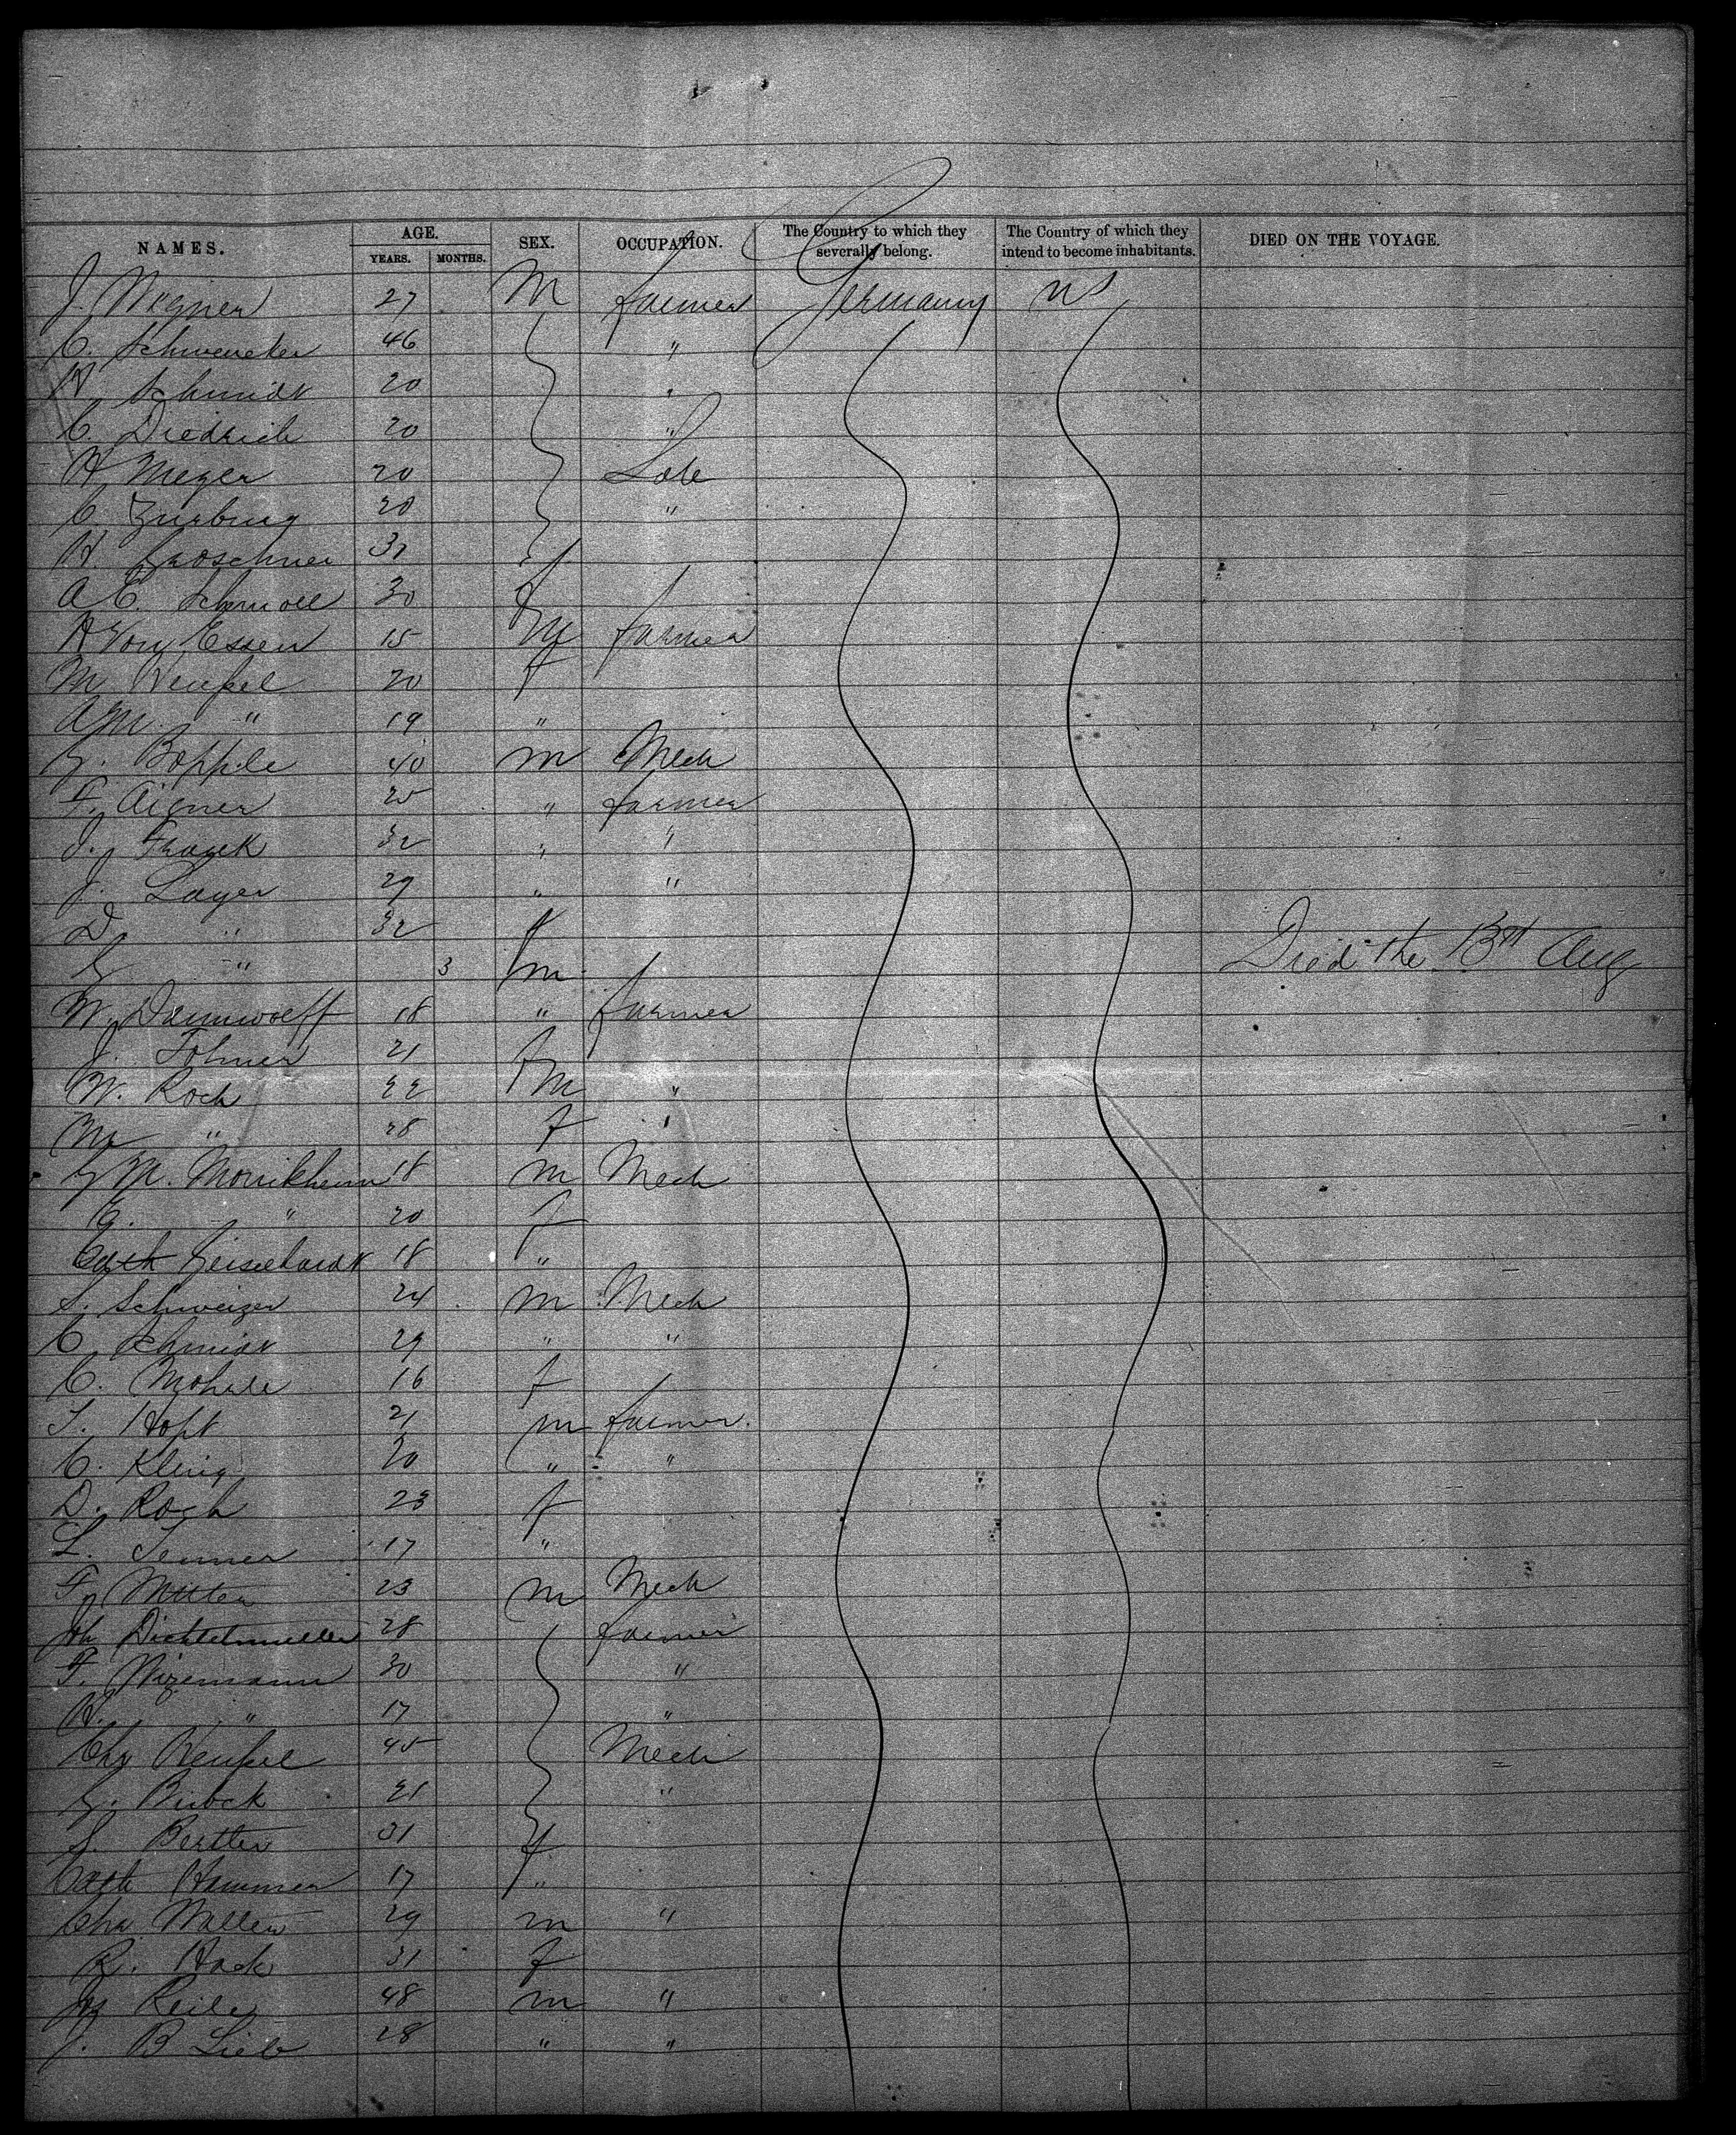 NAMES. AGE. SEX. OCCUPATION. The Country to which they severally belong. The Country of which they intend to become inhabitants. DIED ON THE VOYAGE.
YEARS. MONTHS.
J. Wagner 27 M farmer Germany US
C. Schweneker 46 "
H Schmidt 20 "
C. Diedrich 20 "
H Meyer 20 Lab
C. Zurburg 20 "
H Groschner 31
A C. Schmoll 30 f
H Von Essen 15 M farmer
M Wenfel 20 f
A M. " 19 "
G. Boppile 40 m Mech
F. Aigner 25 " farmer
J. Frank 32 " "
J. Layer 29 " "
D " 32 f
G " 3 m Died the 13th Aug
W. Dannwolff 18 " farmer
J. Fohner 21 f
W. Koch 22 M "
M " 28 f "
G M. Morrikheim 18 m Mech
G. " 20 f
Cath Geiselhardt 18 "
S. Schweizer 24 m Mech
C. Schmidt 29 " "
C. Mohrle 16 f
T. Hopt 21 m farmer.
C. Kling 20 " "
D. Koch 23 f
L. Jenner 17 "
F. 23 m Mech
Jh Dichtelmueller 28 farmer
F. Wizemann 30 "
H. " 17 "
Chr Wenfel 45 Mech
G. Bubck 21 "
S. Bertter 31 f
Cath Hammer 17 "
Chr Walter 29 m "
R. Hack 31 f
Keile 48 m "
J. B Lieb 28 " "